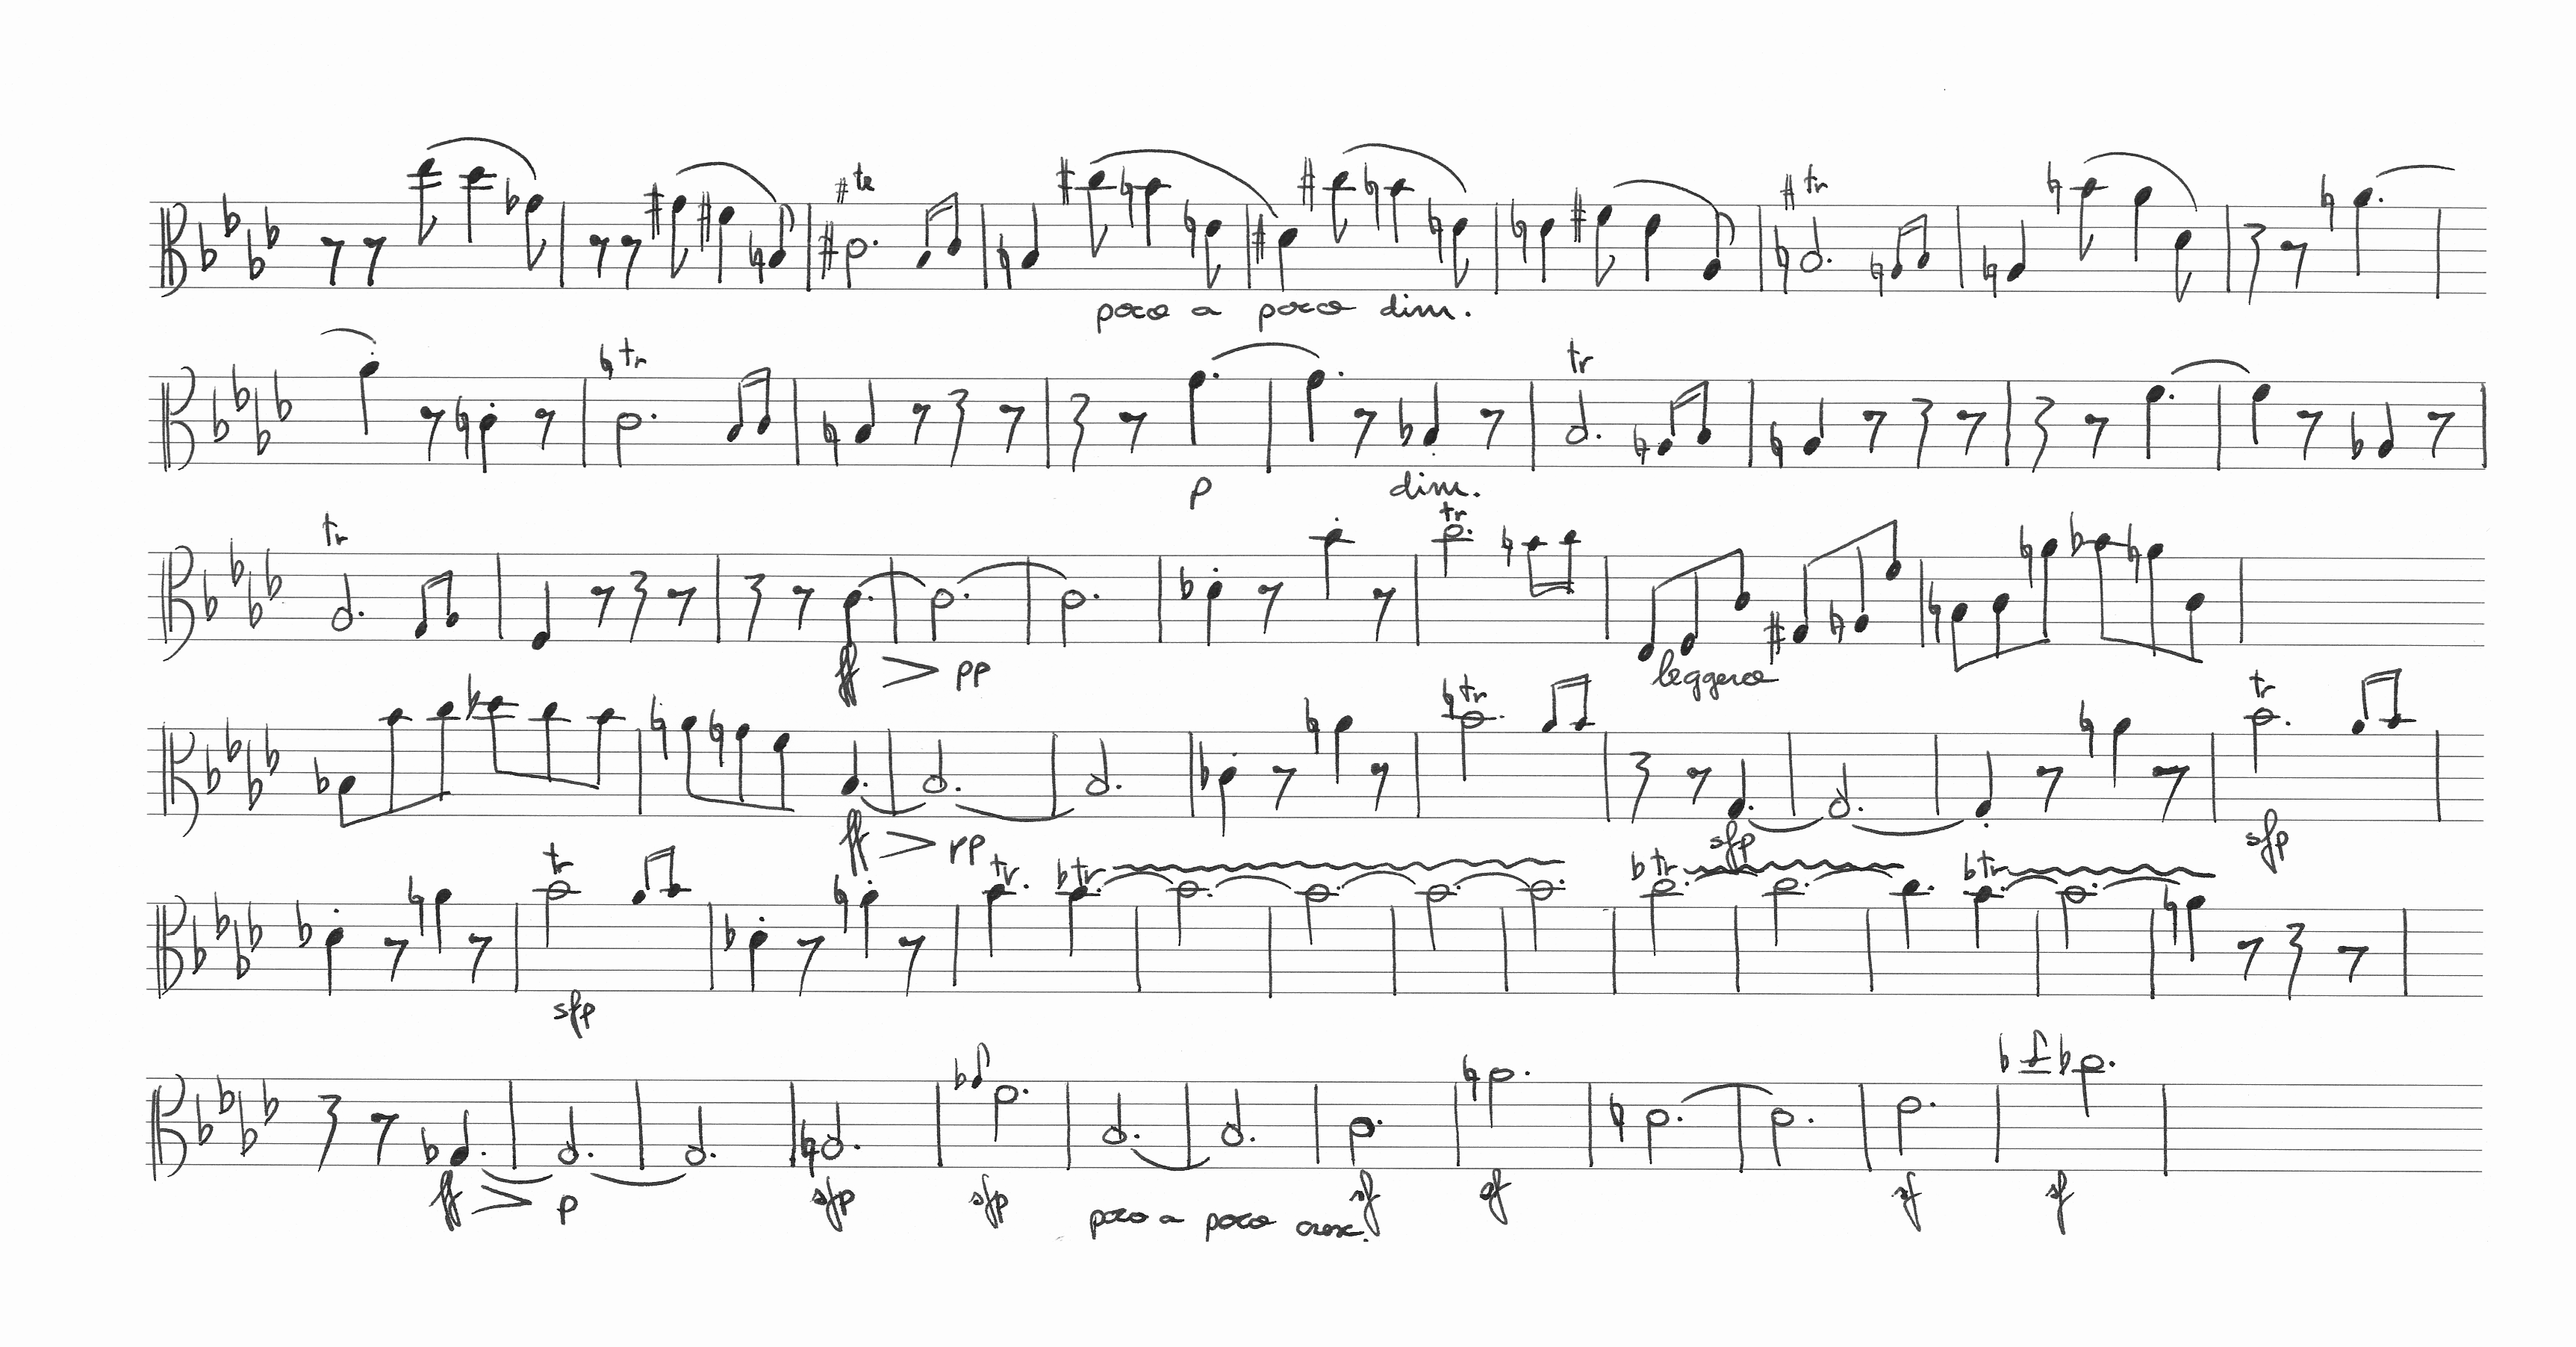 tr tr
poco a poco dim.
tr tr
p dim.
tr tr
ff pp leggero
tr tr
ff pp sfp sfp
tr tr tr tr tr
sfp
ff p sfp sfp sf sf sf sf
poco a poco cresc.